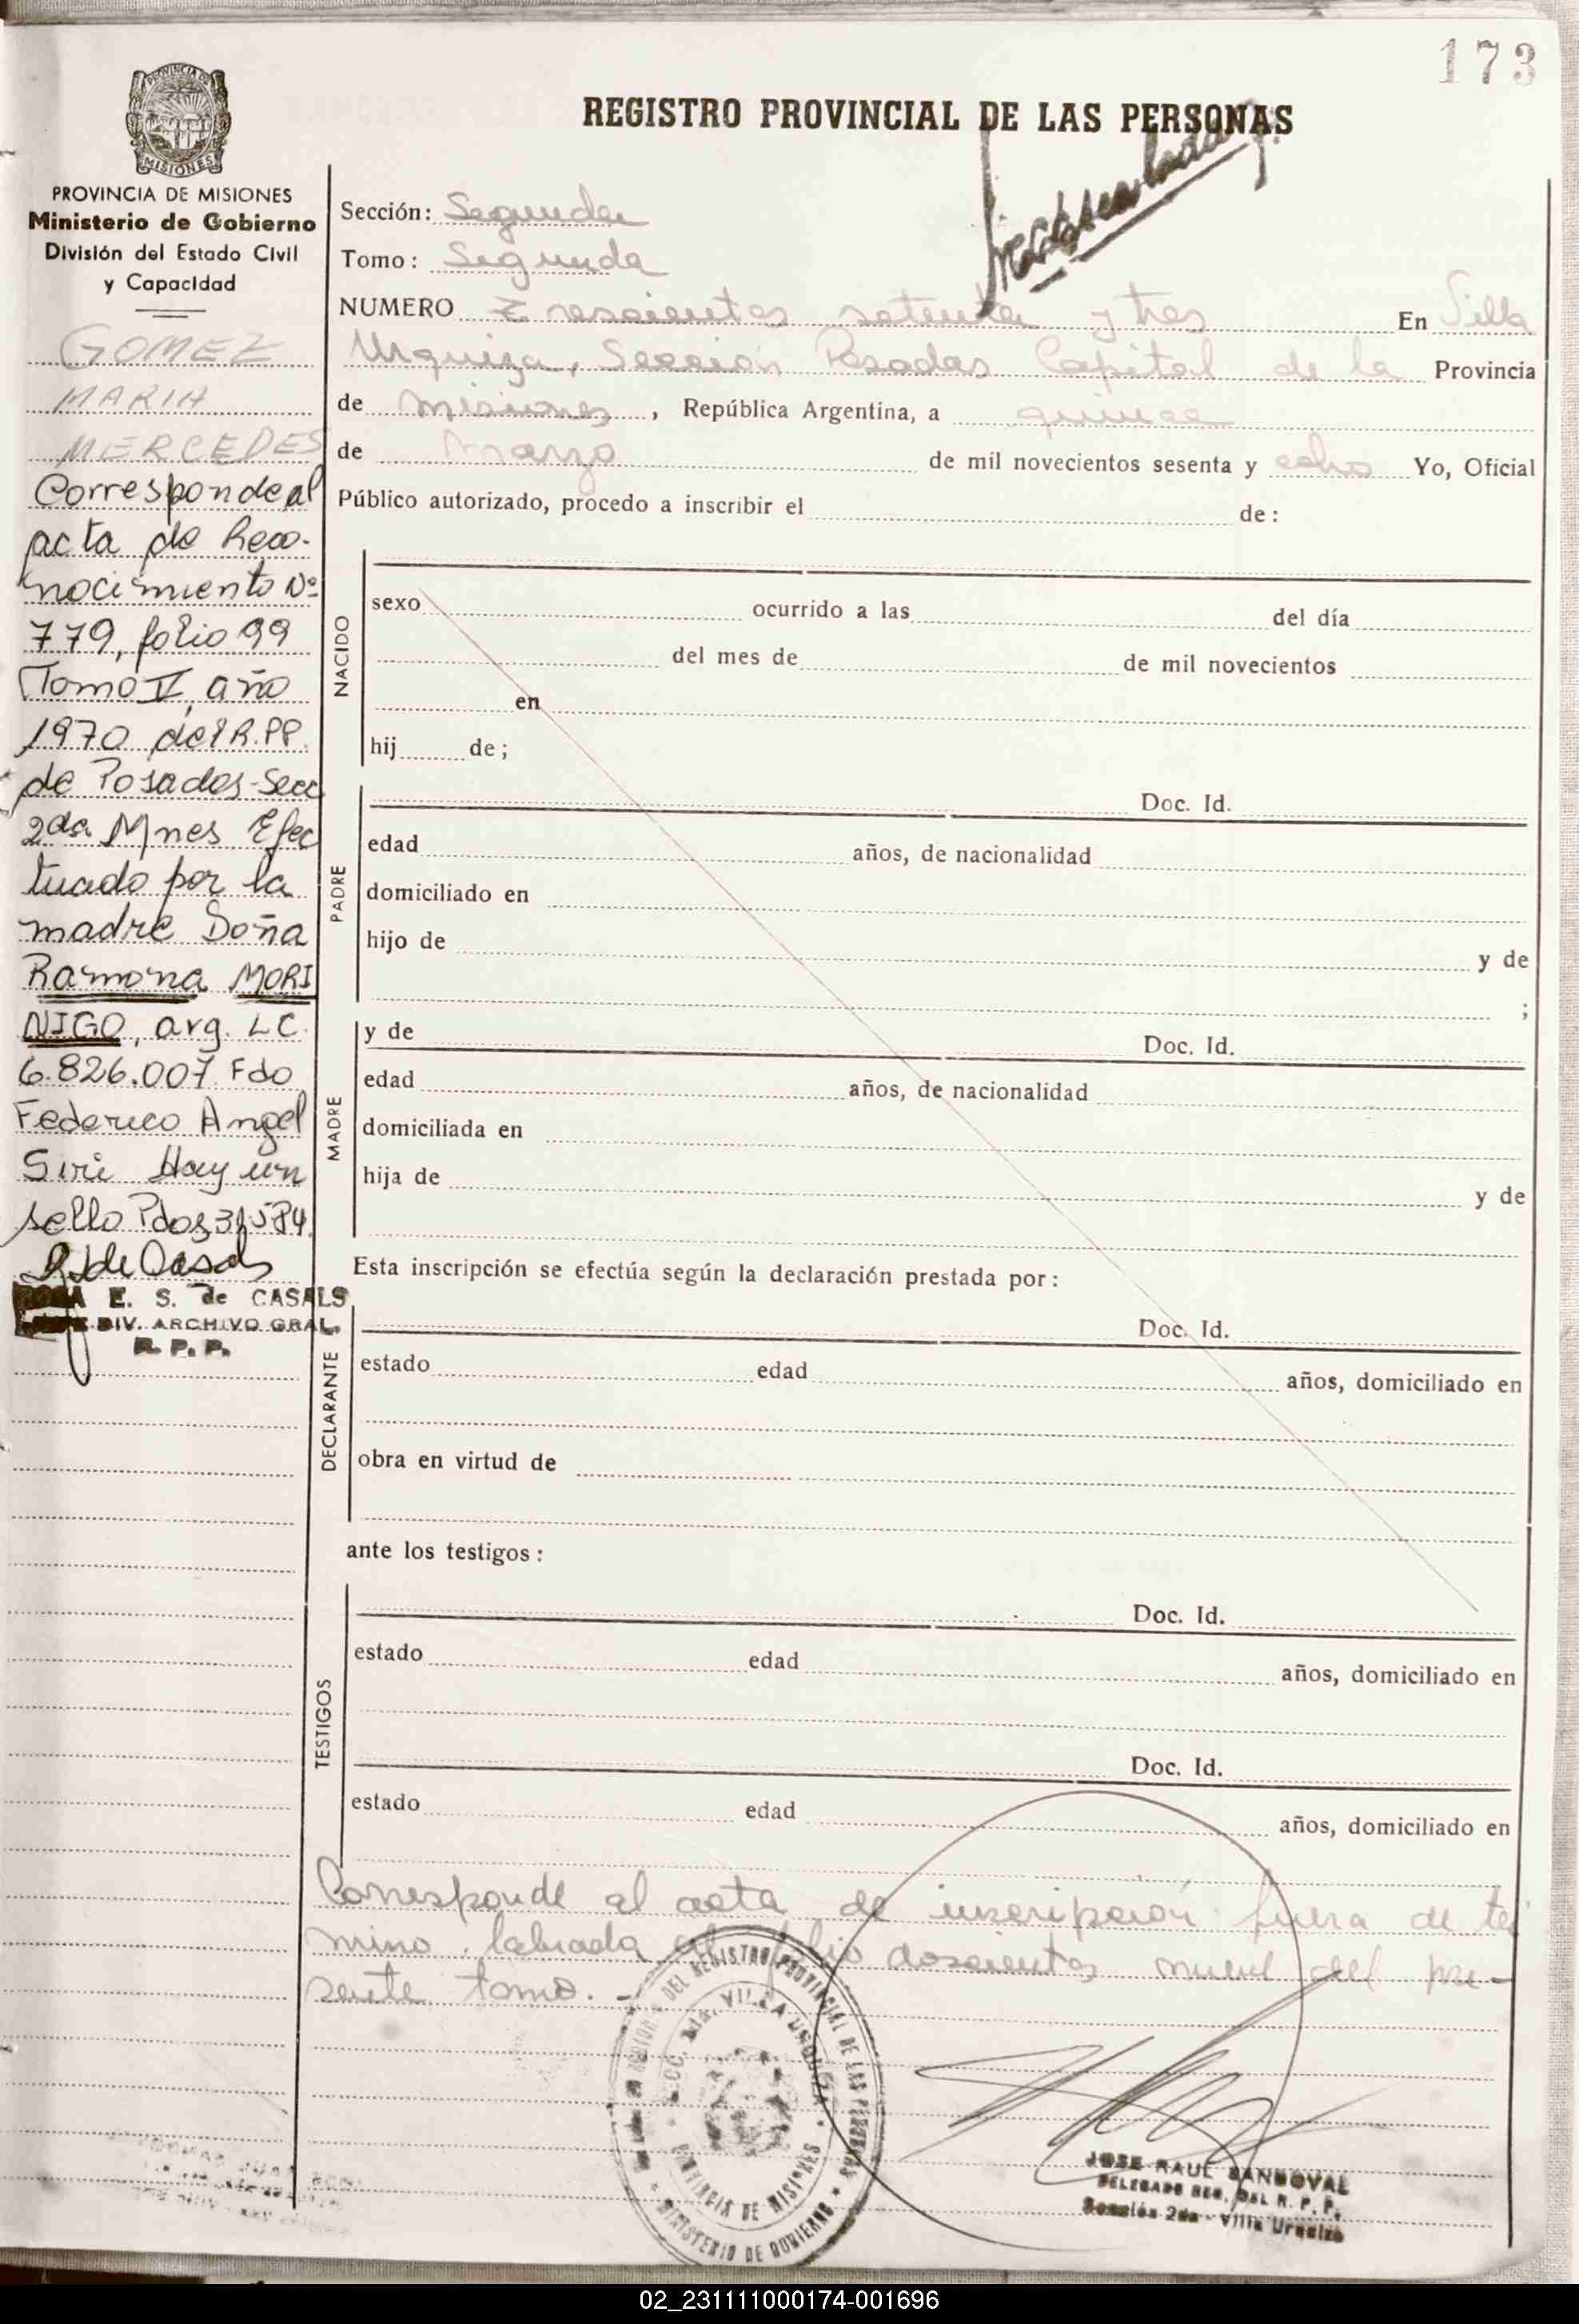 173
REGISTRO PROVINCIAL DE LAS PERSONAS
PROVINCIA DE MISIONES
Ministerio de Gobierno
División del Estado Civil
y Capacidad
GOMEZ
MARIA
MERCEDES
Corresponde al
acta de Reco-
nocimiento Nº
779, folio 99
Tomo II, año
1970 del R.P.P.
de Posadas-Secc
2da Mnes Efec
tuado por la
madre Doña
Ramona MORI
NIGO, arg. L C.
6.826.007 Fdo
Federico Angel
Siri Hay un
sello Pdas 31-5-84
R S de Casals
ROSA E. S. de CASALS
JEFE DIV. ARCHIVO GRAL.
R. P. P.
Sección: Segunda
Tomo: Segunda
NUMERO Trescientos setenta y tres En Villa
Urquiza, Sección Posadas Capital de la Provincia
de Misiones, República Argentina, a quince
de Marzo de mil novecientos sesenta y ocho Yo, Oficial
Público autorizado, procedo a inscribir el de:
NACIDO
sexo ocurrido a las del día
del mes de de mil novecientos
en
hij de;
PADRE
Doc. Id.
edad años, de nacionalidad
domiciliado en
hijo de y de
;
MADRE
y de Doc. Id.
edad años, de nacionalidad
domiciliada en
hija de y de
Esta inscripción se efectúa según la declaración prestada por:
DECLARANTE
Doc. Id.
estado edad años, domiciliado en
obra en virtud de
ante los testigos:
TESTIGOS
Doc. Id.
estado edad años, domiciliado en
Doc. Id.
estado edad años, domiciliado en
Corresponde al acta de inscripción fuera de tér
mino labrada al folio doscientos nueve del pre-
sente tomo. -
DEL REGISTRO PROVINCIAL DE LAS PERSONAS
SECC. 2da. VILLA URQUIZA
PROVINCIA DE MISIONES
MINISTERIO DE GOBIERNO
JOSE RAUL SANDOVAL
DELEGADO REG. DEL R. P. P.
Sección 2da - Villa Urquiza
02_231111000174-001696